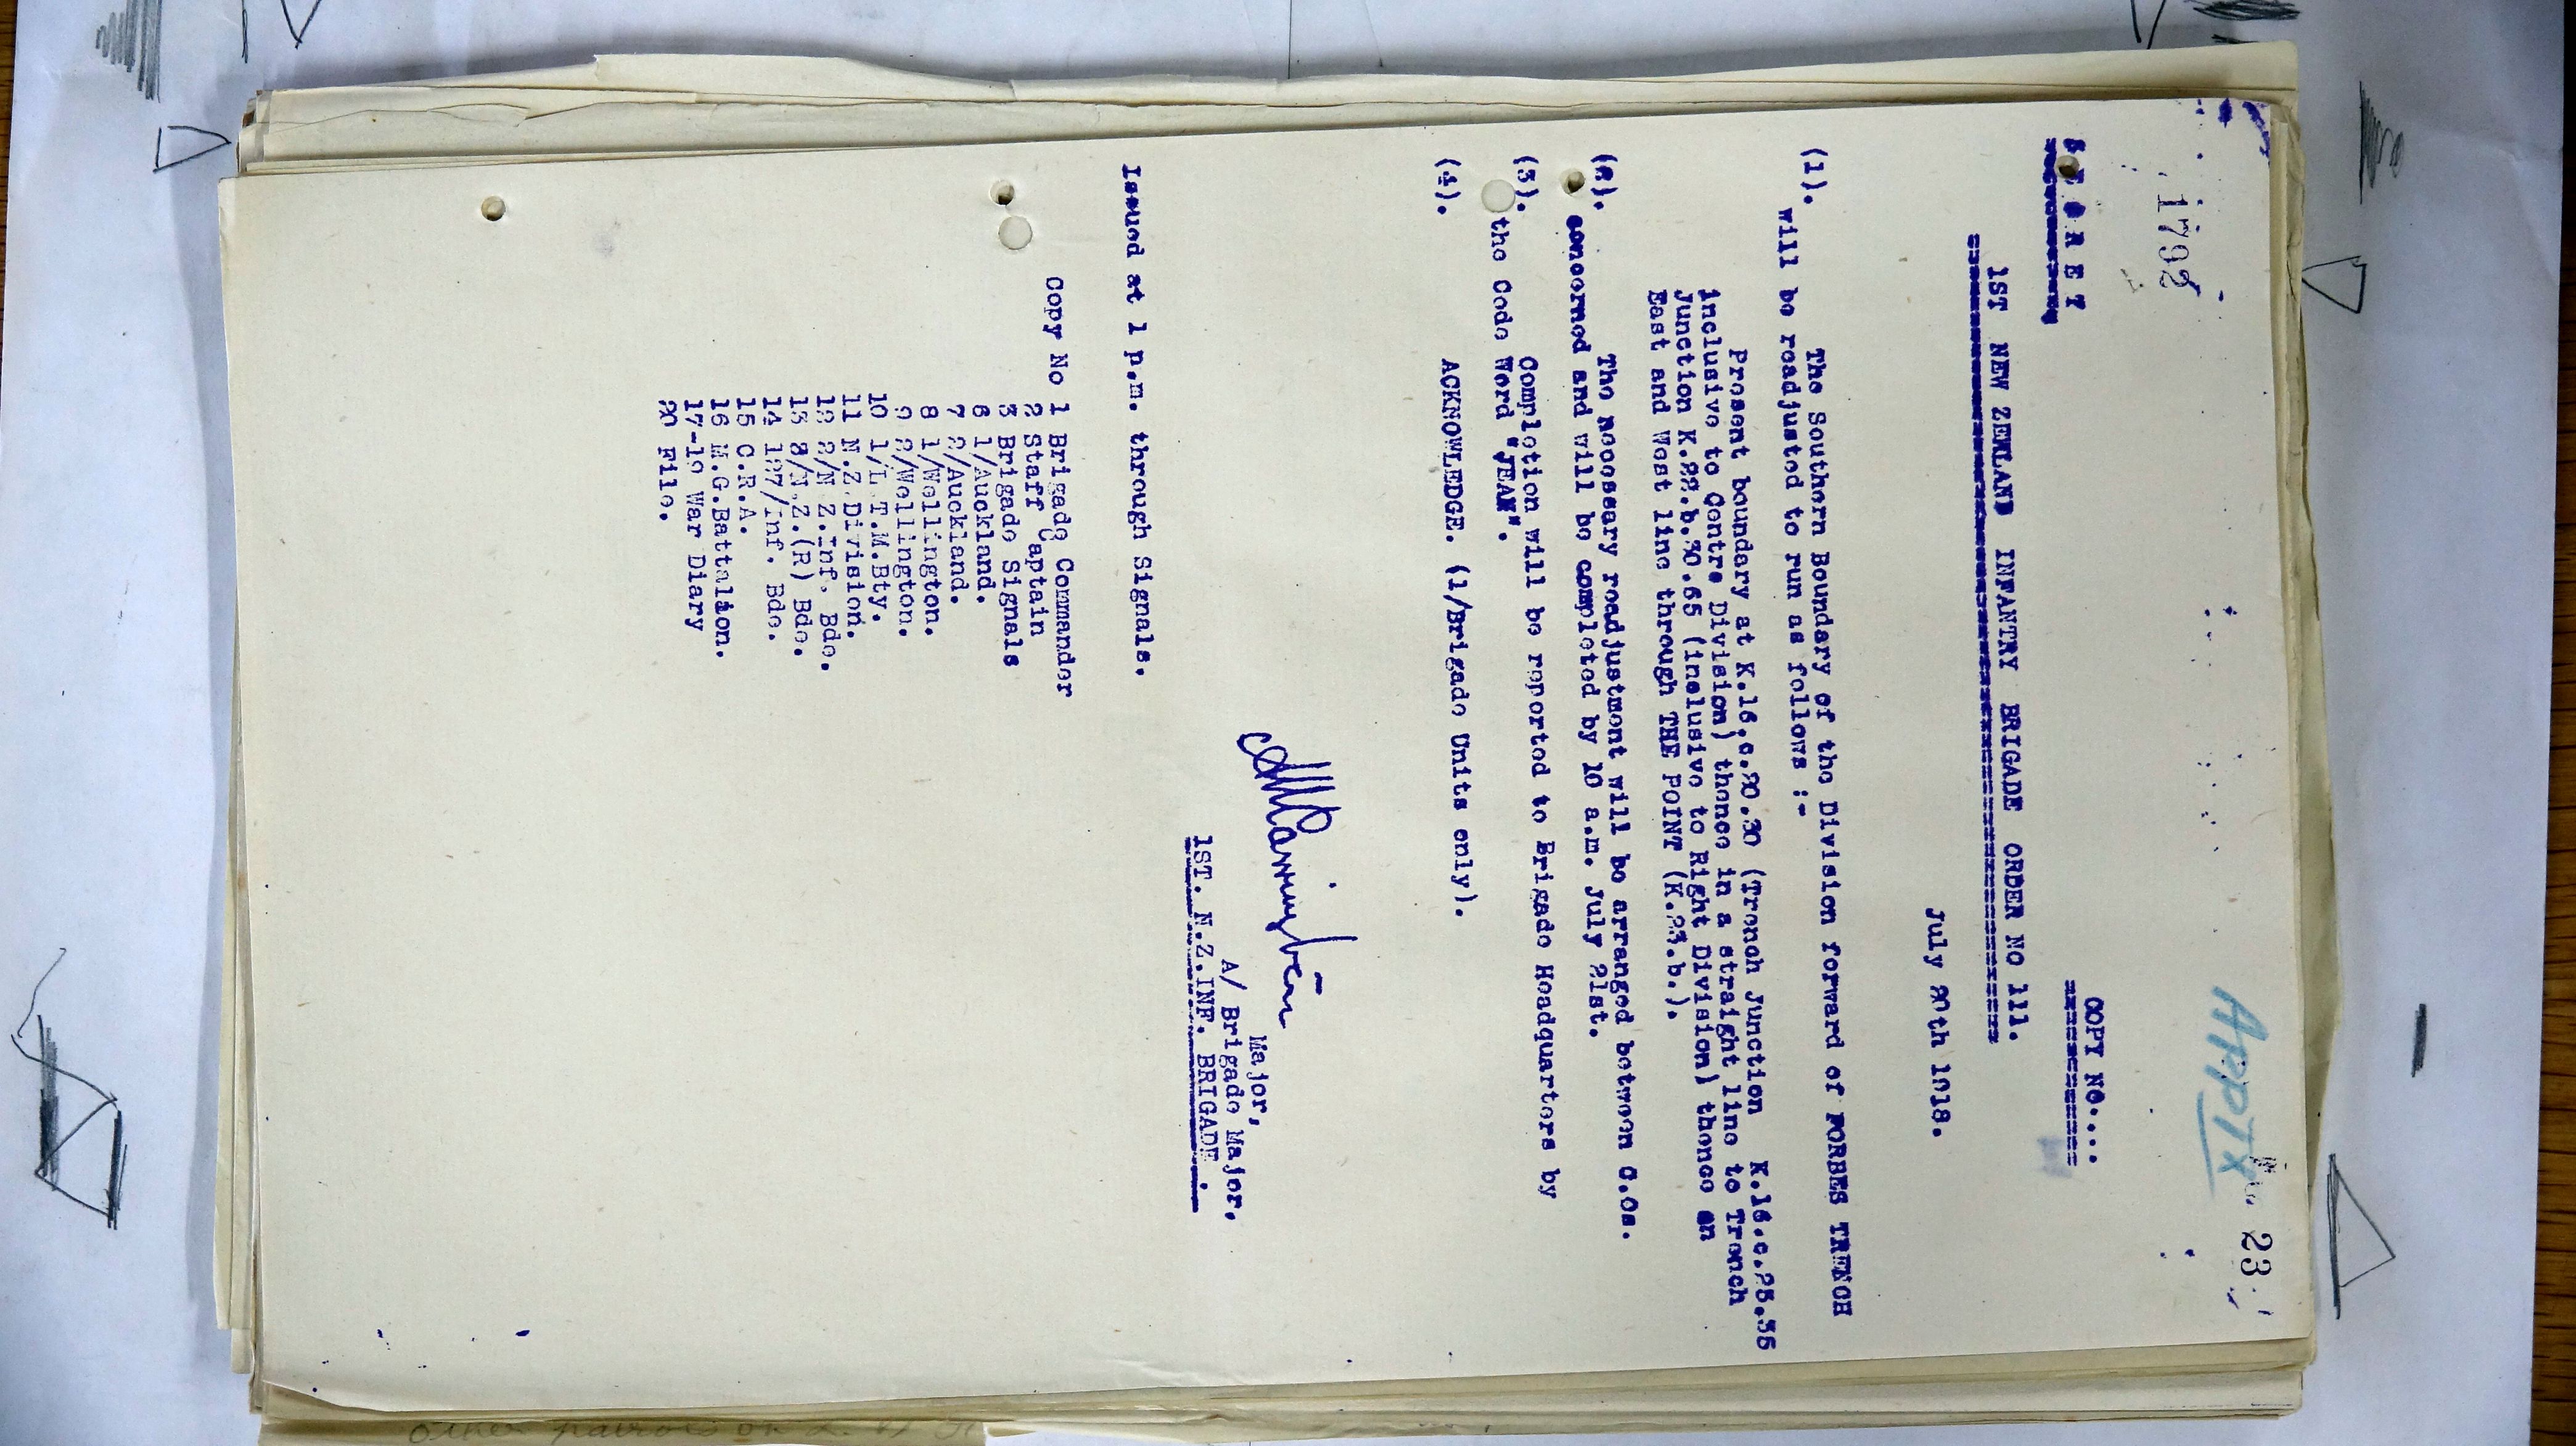 1792
APPIX 23
SECRET
COPY NO....
1ST NEW ZEALAND INFANTRY BRIGADE ORDER NO 111.
July 20th 1918.
(1). The Southern Boundary of the Division forward of FORBES TRENCH
will be readjusted to run as follows :-
Present boundary at K.16.c.20.30 (Trench Junction K.16.c.25.35
inclusive to Centre Division) thence in a straight line to Trench
Junction K.22.b.30.65 (inclusive to Right Division) thence an
East and West line through THE POINT (K.23.b.).
(2). The necessary readjustment will be arranged between C.Os.
concerned and will be completed by 10 a.m. July 21st.
(3). Completion will be reported to Brigade Headquarters by
the Code Word "JEAN".
(4). ACKNOWLEDGE. (1/Brigade Units only).
Major,
A/ Brigade Major,
1ST. N.Z.INF. BRIGADE.
Issued at 1 p.m. through Signals.
Copy No 1 Brigade Commander
2 Staff Captain
3 Brigade Signals
6 1/Auckland.
7 2/Auckland.
8 1/Wellington.
9 2/Wellington.
10 1/L.T.M.Bty.
11 N.Z.Division.
12 2/N.Z.Inf. Bde.
13 3/N.Z.(R) Bde.
14 187/Inf. Bde.
15 C.R.A.
16 M.G.Battalion.
17-19 War Diary
20 File.